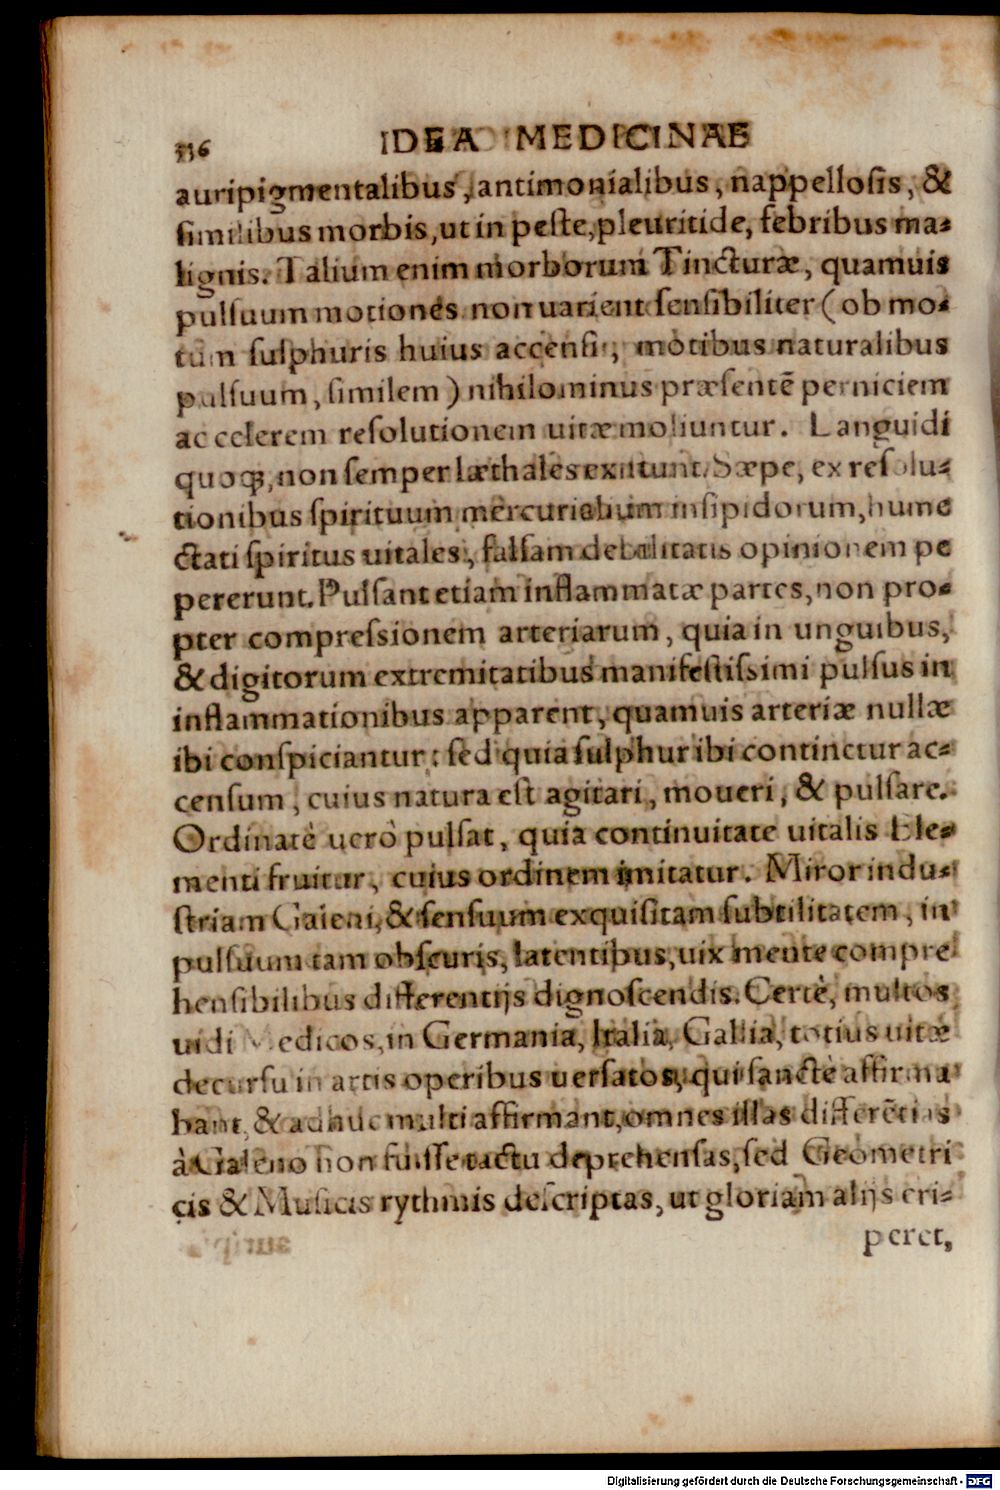 336 IDEA MEDICINAE
auripigmentalibus, antimonialibus, nappellosis, &
similibus morbis, ut in peste, pleuritide, febribus ma-
lignis. Talium enim morborum Tincturæ, quamuis
pulsuum motiones non uarient sensibiliter (ob mo-
tum sulphuris huius accensi, motibus naturalibus
pulsuum, similem) nihilominus præsentē perniciem
ac celerem resolutionem uitæ moliuntur. Languidi
quoq;, non semper læthales existunt. Sæpe, ex resolu-
tionibus spirituum mercurialium insipidorum, hume
ctati spiritus uitales, falsam debilitatis opinionem pe
pererunt. Pulsant etiam inflammatæ partes, non pro-
pter compressionem arteriarum, quia in unguibus,
& digitorum extremitatibus manifestissimi pulsus in
inflammationibus apparent, quamuis arteriæ nullæ
ibi conspiciantur: sed quia sulphur ibi continetur ac-
censum, cuius natura est agitari, moueri, & pulsare.
Ordinatè uerò pulsat, quia continuitate uitalis Ele-
menti fruitur, cuius ordinem imitatur. Miror indu-
striam Galeni, & sensuum exquisitam subtilitatem, in
pulsuum tam obscuris, latentibus, uix mente compre
hensibilibus differentijs dignoscendis. Certè, multos
uidi Medicos, in Germania, Italia, Gallia, totius uitæ
decursu in artis operibus uersatos, qui sanctè affirma
bant, & adhuc multi affirmant, omnes illas differētias
à Galeno non fuisse tactu deprehensas, sed Geometri
cis & Musicis rythmis descriptas, ut gloriam alijs eri-
peret,
Digitalisierung gefördert durch die Deutsche Forschungsgemeinschaft - DFG